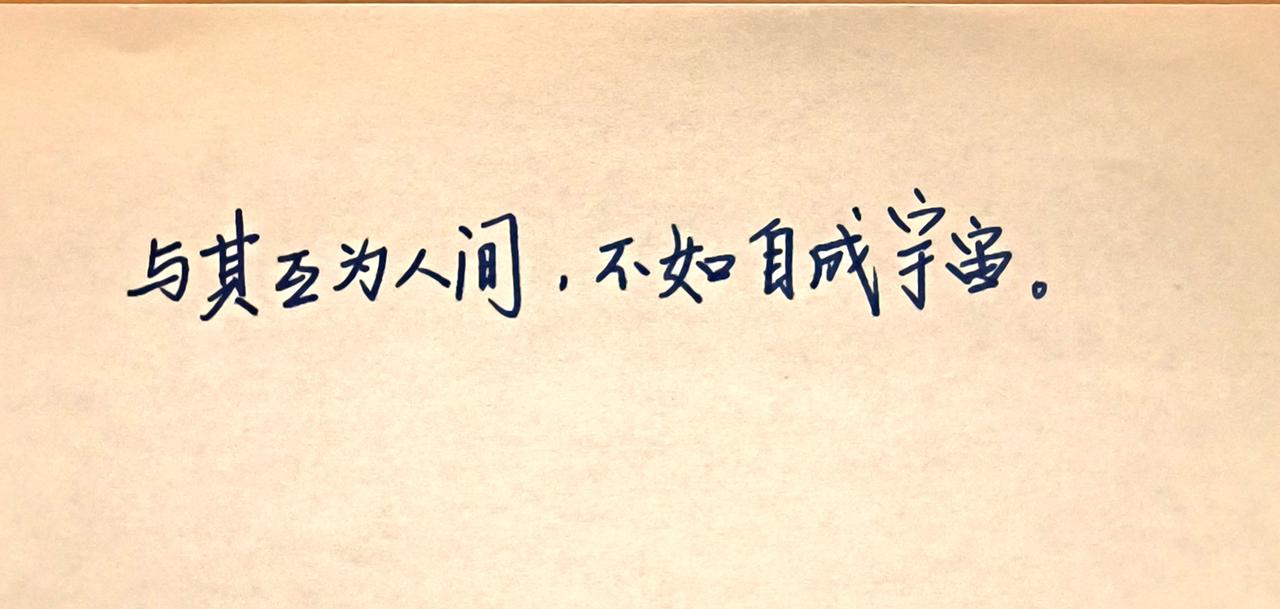 与其互为人间，不如自成宇宙。